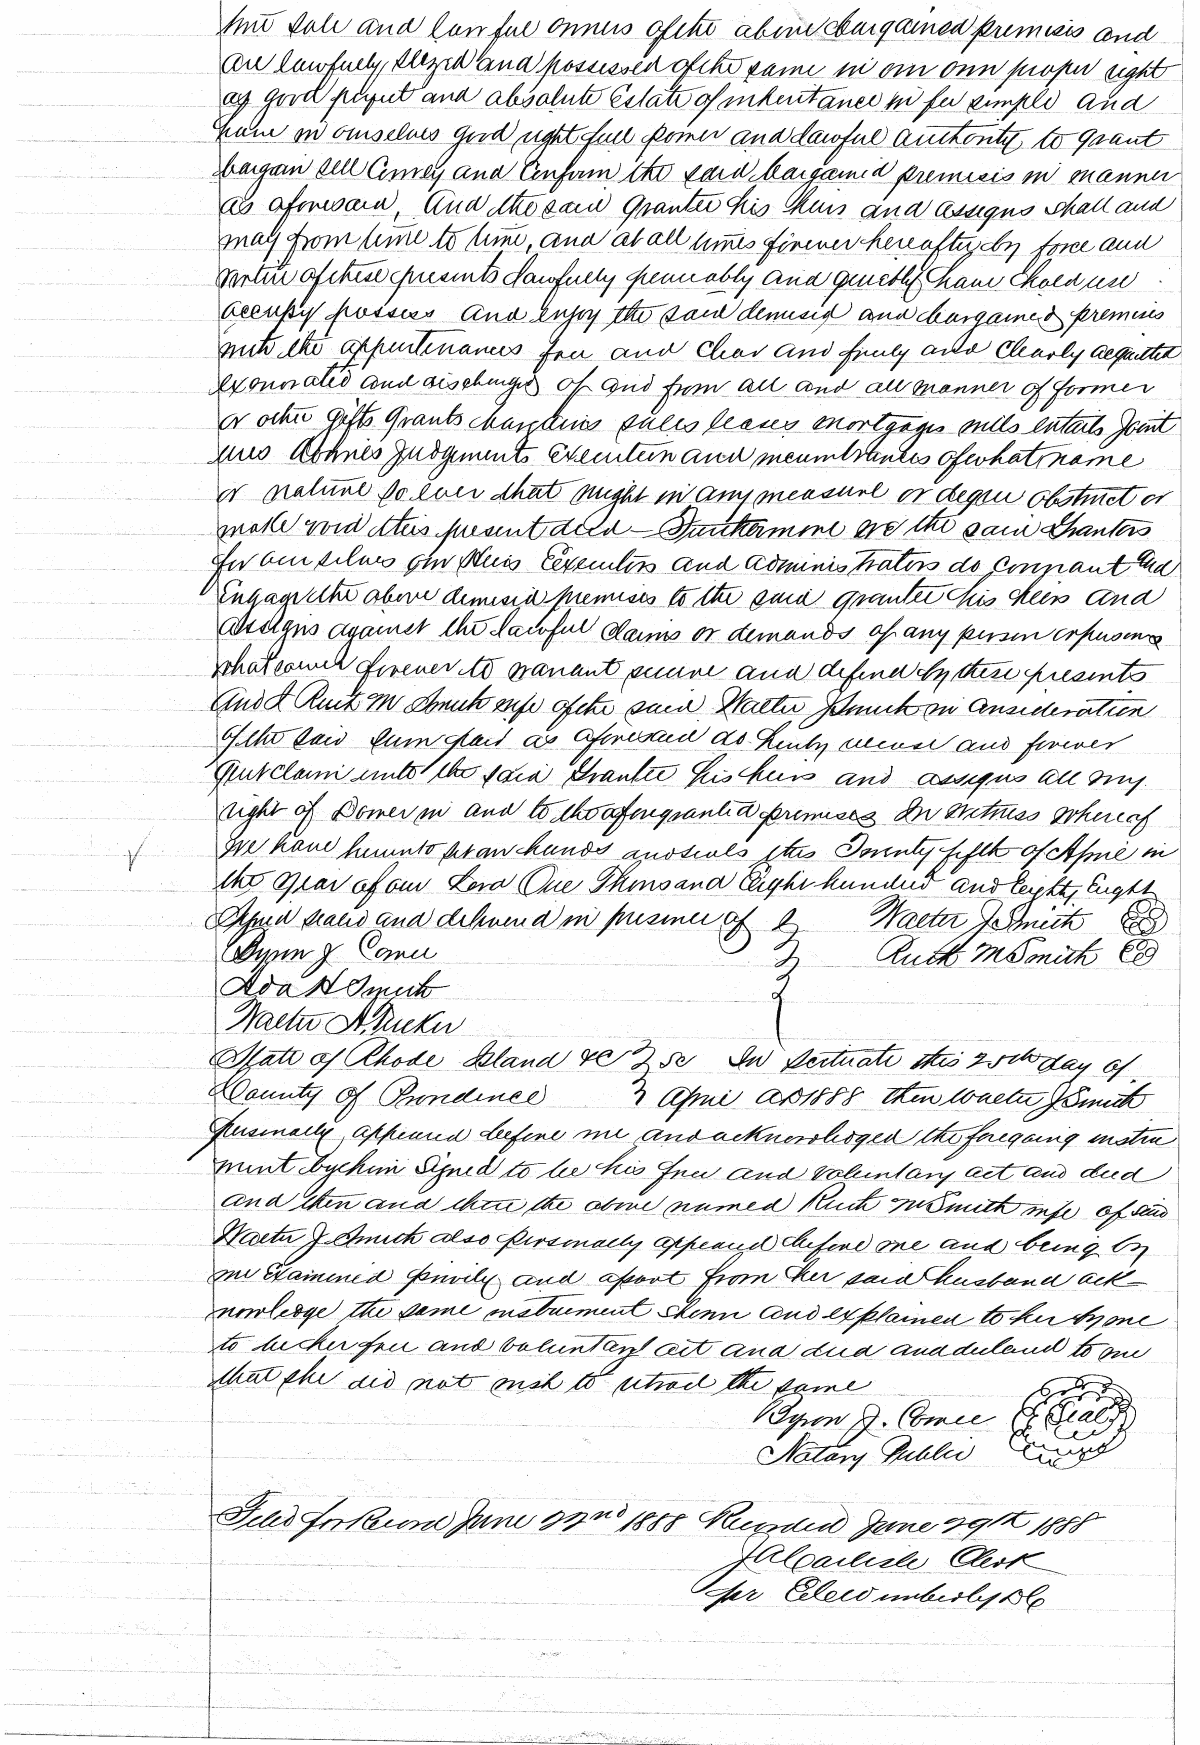 true sole and lawful owners of the above bargained premises and
are lawfully seized and possessed of the same in our own proper right
as good perfect and absolute Estate of inheritance in fee simple and
have in ourselves good right full power and lawful authority to grant
bargain sell Convey and Confirm the said bargained premises in manner
as aforesaid, And the said Grantee his heirs and assigns shall and
may from time to time, and at all times forever hereafter by force and
virtue of these presents lawfully peaceably and quietly have hold use
occupy possess and enjoy the said demised and bargained premises
with the appurtenances free and clear and freely and clearly acquitted
exonorated and discharged of and from all and all manner of former
or other gifts grants bargains sales leases mortgages wills entails Joint
ures Dowries Judgements Execution and incumbrances of what name
or nature so ever that might in any measure or degree obstruct or
make void this present deed — Furthermore we the said Grantors
for ourselves our Heirs Executors and administrators do covenant and
Engage the above demised premises to the said grantee his heirs and
assigns against the lawful claims or demands of any person or persons
whatsoever forever to warrant secure and defend by these presents
And I Ruth M Smith wife of the said Walter J Smith in consideration
of the said sum paid as aforesaid do hereby release and forever
Quitclaim unto the said Grantee his heirs and assigns all my
right of Dower in and to the aforegranted premises In Witness whereof
we have hereunto set our hands and seals this Twenty fifth of April in
the year of our Lord One Thousand Eight hundred and Eighty Eight
Signed sealed and delivered in presence of Walter J Smith
Byron J Comee Ruth M Smith
Ada H Smith
Walter A. Tucker
State of Rhode Island &c Sc In Scituate this 25th day of
County of Providence April AD 1888 then Walter J Smith
personally appeared before me and acknowledged the foregoing instru
ment by him Signed to be his free and voluntary act and deed
and then and there the above named Ruth M Smith wife of said
Walter J. Smith also personally appeared before me and being by
me Examined privily and apart from her said husband ack—
nowledge the same instrument shown and explained to her by me
to be her free and voluntary act and deed and declared to me
that she did not wish to retract the same
Byron J. Comee Seal
Notary Public
Filed for Record June 22nd 1888 Recorded June 29th 1888
J A Carlisle Clerk
per DC